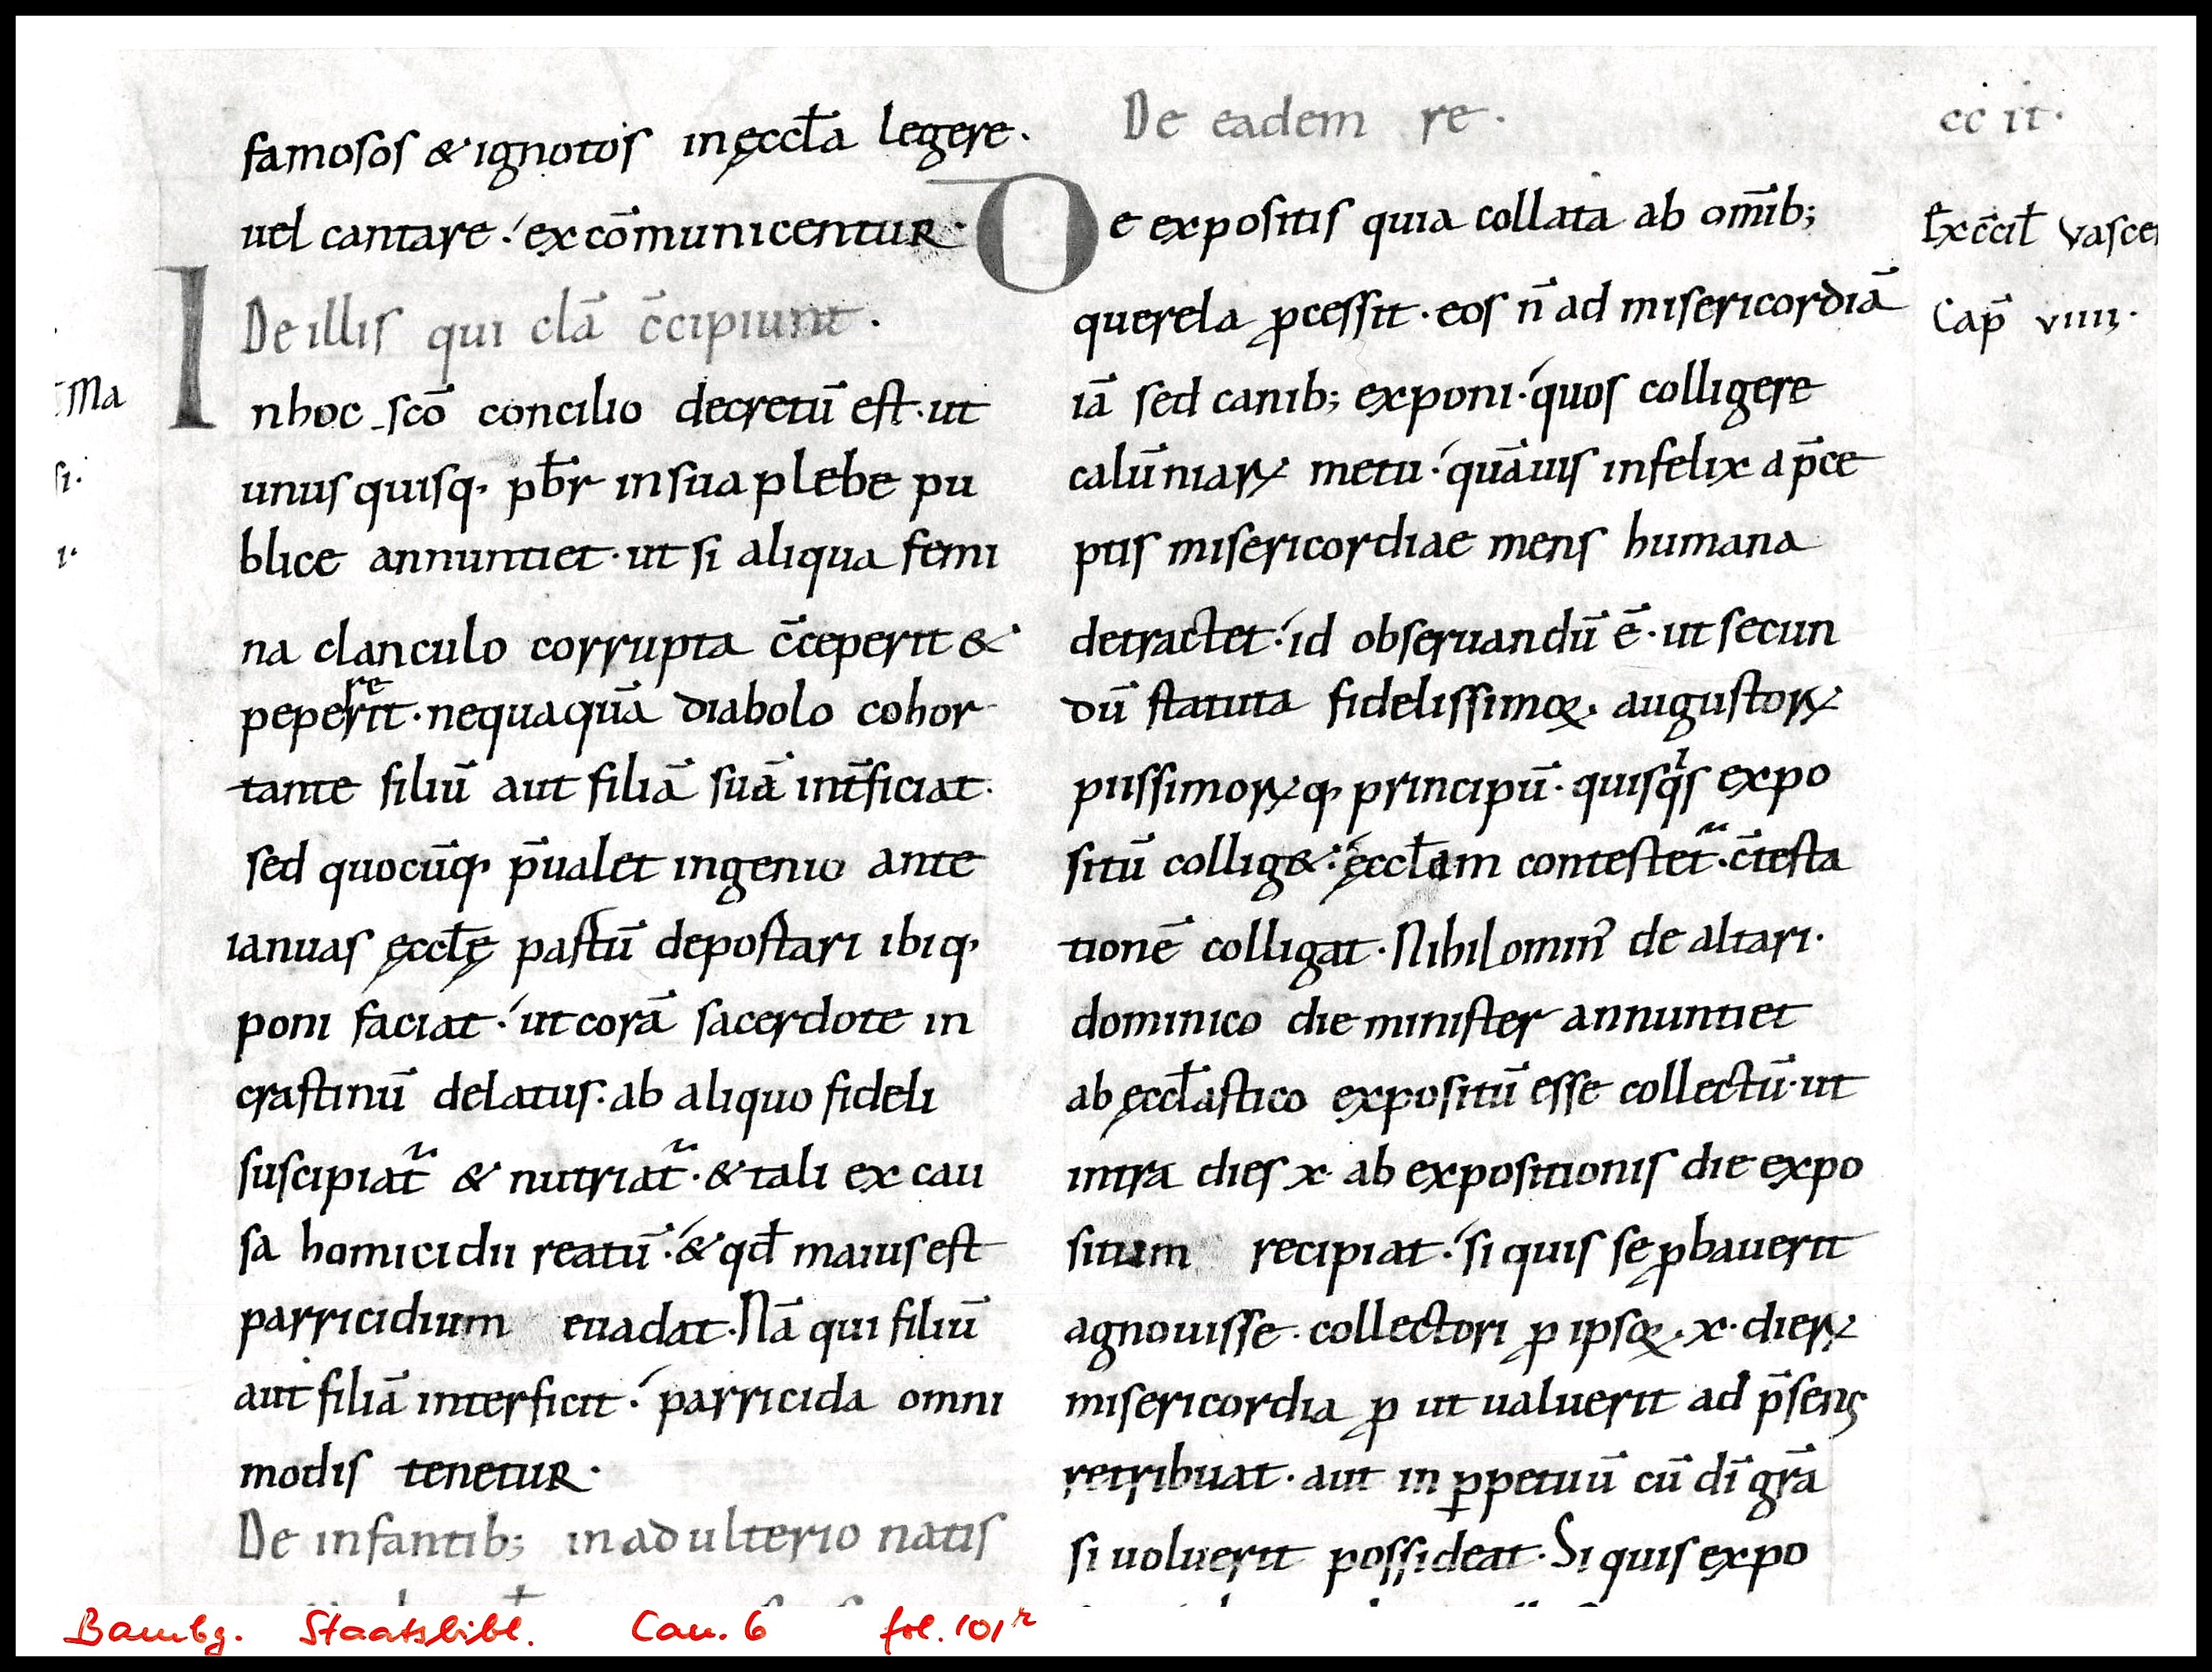 famosos & ignotos in ęccl̄a legere.
uel cantare. excōmunicentur.
De illis qui clā c̄cipiunt.
In hoc scō concilio decretū est. ut
unusquisq. pb̄r in sua plebe pu
blice annuntiet. ut si aliqua femi
na clanculo corrupta c̄ceperit &
pepererit. nequaquā diabolo cohor
tante filiū aut filiā suā int̄ficiat.
sed quocūq. p̄ualet ingenio ante
ianuas ęccl̄ę partū deportari ibiq.
poni faciat. ut corā sacerdote in
crastinū delatus. ab aliquo fideli
suscipiat̃ & nutriat̃. & tali ex cau
sa homicidii reatū. & qd̄ maius est
parricidium euadat. Nā qui filiū
aut filiā interficit. parricida omni
modis tenetur.
De infantib; in adulterio natis
De eadem re.
De expositis quia collata ab om̄ib;
querela ꝓcessit. eos n̄ ad misericordiā
iā sed canib; exponi. quos colligere
calūniaꝝ metu. quāuis infelix a p̄ce
ptis misericordiae mens humana
detractet. id obseruandū ē. ut secun
dū statuta fidelissimoꝝ. augustoꝝ
piissimoꝝq. principū. quisqͥs expo
sitū collig&. ęccl̄am contestet̃. c̄testa
tionē colligat. Nihilomin᾽ de altari.
dominico die minister annuntiet
ab ęccl̄astico expositū esse collectū. ut
intra dies x. ab expositionis die expo
situm recipiat. si quis se ꝓbauerit
agnouisse. collectori ꝓ ipsoꝝ. x. dieꝝ
misericordia ꝓ ut ualuerit ad p̄sens
retribuat. aut in ꝑpetuū cū dī grā
si uoluerit possideat. Si quis expo
Ex c̄cil̄
Cap̄ VIIII.
Bambg. Staatsbibl. Can. 6 fol. 101r